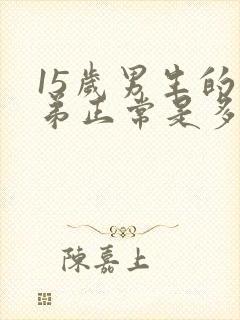 15歲男生的
弟正常是多
陳嘉上